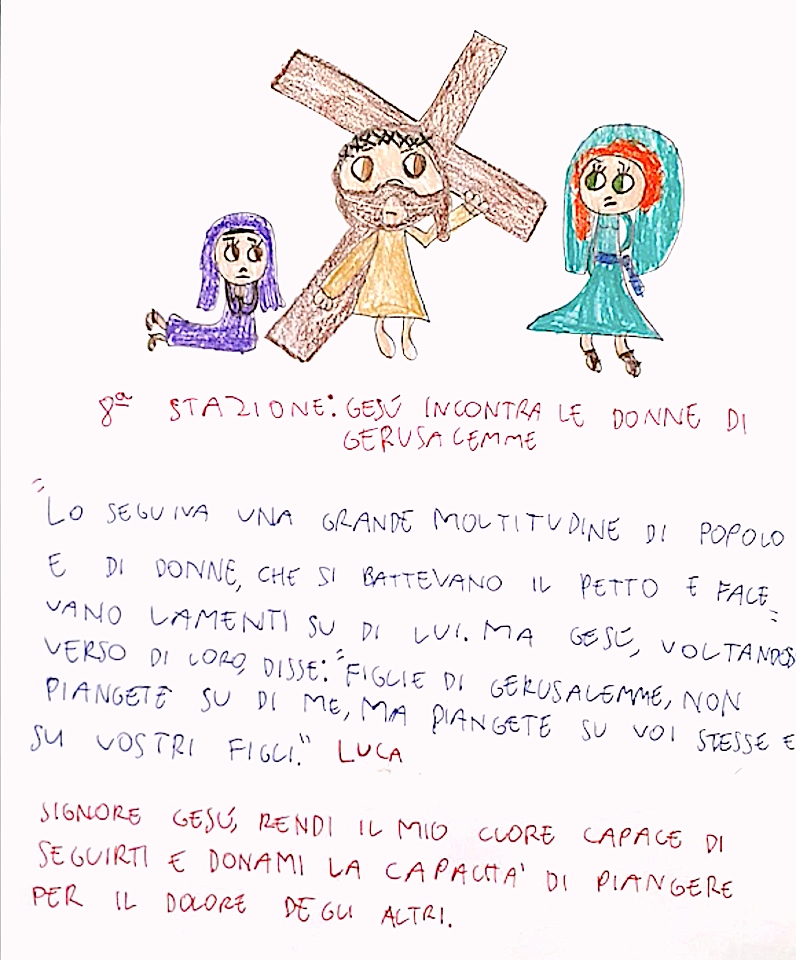 8ª STAZIONE: GESÚ INCONTRA LE DONNE DI
GERUSALEMME
"LO SEGUIVA UNA GRANDE MOLTITUDINE DI POPOLO
E DI DONNE, CHE SI BATTEVANO IL PETTO E FACE=
VANO LAMENTI SU DI LUI. MA GESÚ, VOLTANDOSI
VERSO DI LORO, DISSE: "FIGLIE DI GERUSALEMME, NON
PIANGETE SU DI ME, MA PIANGETE SU VOI STESSE E
SU VOSTRI FIGLI." LUCA
SIGNORE GESÚ, RENDI IL MIO CUORE CAPACE DI
SEGUIRTI E DONAMI LA CAPACITA' DI PIANGERE
PER IL DOLORE DEGLI ALTRI.